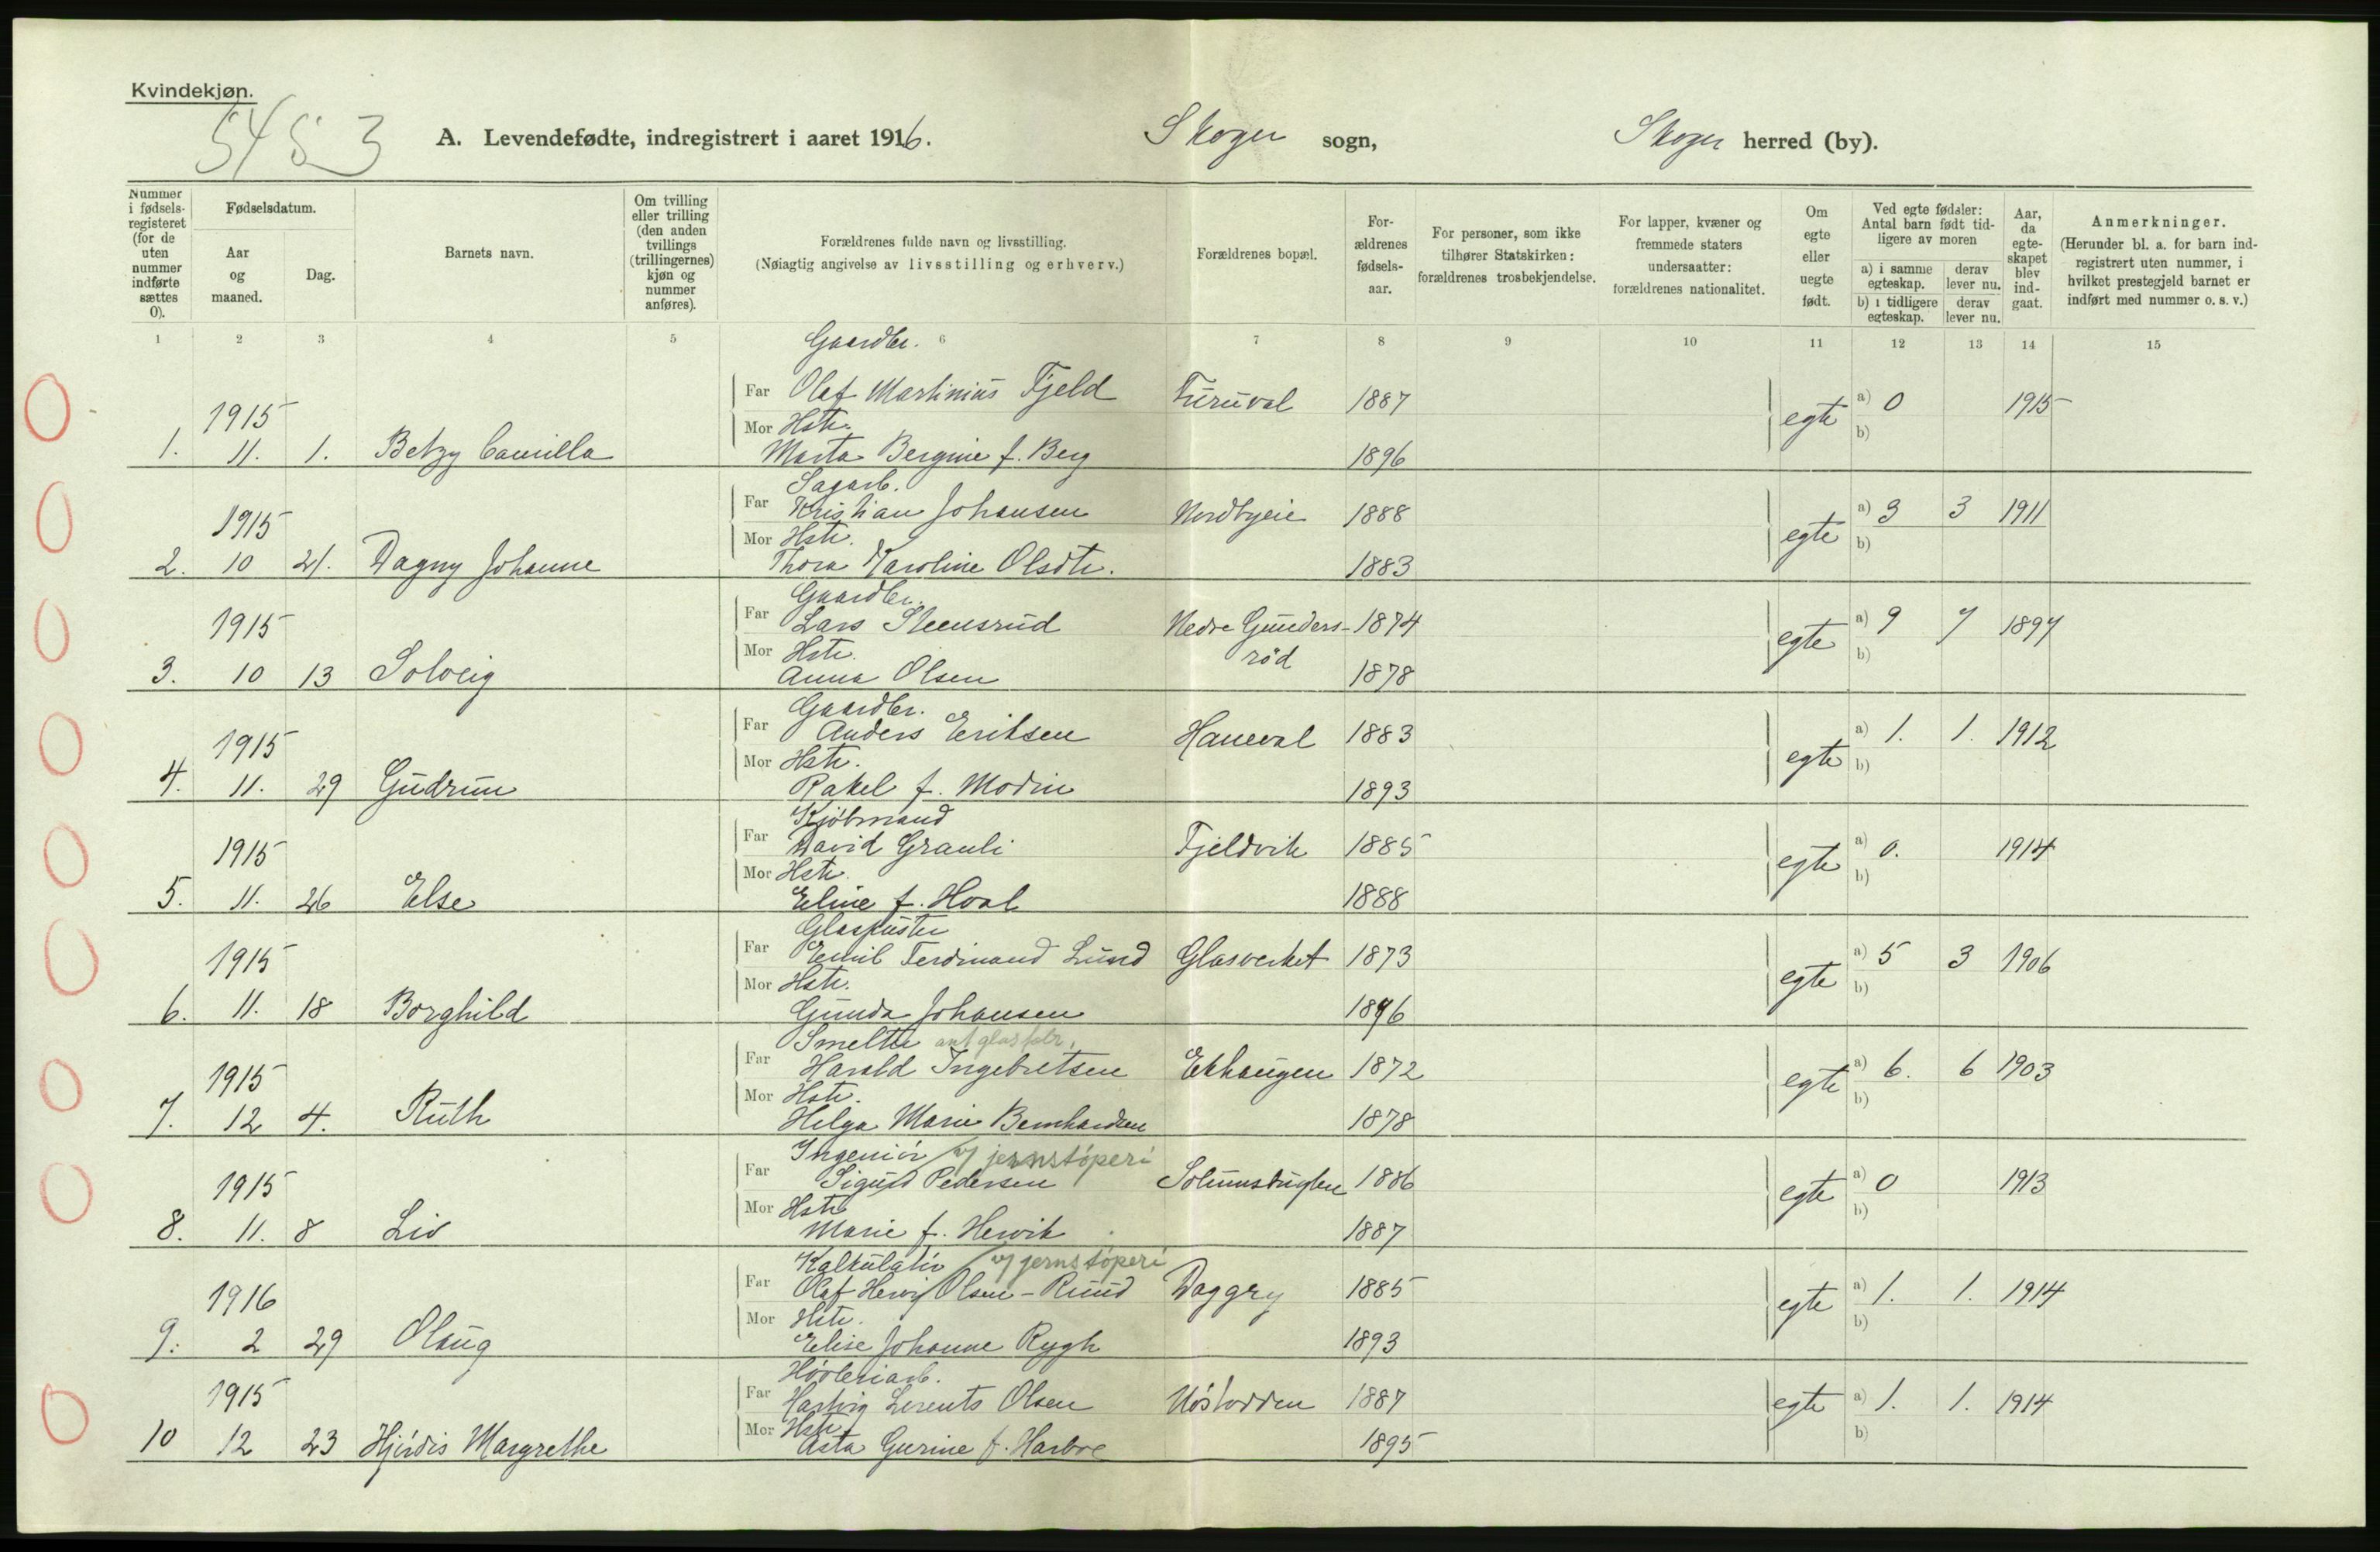 Kvindekjøn.
5483
A. Levendefødte, indregistrert i aaret 1916. Skoger sogn, Skoger herred (by).
Nummer i fødsels-registeret (for de uten nummer indførte sættes 0).
Fødselsdatum.
Aar og maaned.
Dag.
Barnets navn.
Om tvilling eller trilling (den anden tvillings (trillingernes) kjøn og nummer anføres).
Forældrenes fulde navn og livsstilling.
(Nøiagtig angivelse av livsstilling og erhverv.)
Forældrenes bopæl.
For-ældrenes fødsels-aar.
For personer, som ikke tilhører Statskirken: forældrenes trosbekjendelse.
For lapper, kvæner og fremmede staters undersaatter: forældrenes nationalitet.
Om egte eller uegte født.
Ved egte fødsler: Antal barn født tid-ligere av moren
a) i samme egteskap. derav lever nu.
b) i tidligere egteskap. derav lever nu.
Aar, da egte-skapet blev ind-gaat.
Anmerkninger.
(Herunder bl. a. for barn ind-registrert uten nummer, i hvilket prestegjeld barnet er indført med nummer o. s. v.)
1 2 3 4 5 6 7 8 9 10 11 12 13 14 15
Gaardbr.
Far Olaf Martinius Fjeld Furuval 1887 egte a) 0 1915
1915 Mor Hstr. b)
1. 11. 1. Betzy Camilla Marta Bergine f. Berg 1896
Sagarb.
Far Kristian Johansen Nordbyeie 1888 egte a) 3 3 1911
1915 Mor Hstr. b)
2. 10 21. Dagny Johanne Thora Karoline Olsdtr. 1883
Gaardbr.
Far Lars Steensrud Nedre Gunders- 1874 egte a) 9 7 1897
1915 Mor Hstr. rød b)
3. 10 13 Solveig Anna Olsen 1878
Gaardbr.
Far Anders Eriksen Haneval 1883 egte a) 1. 1. 1912
1915 Mor Hstr. b)
4. 11. 29 Gudrun Rakel f. Modin 1893
Kjøbmand
Far David Grauli Fjeldvik 1885 egte a) 0. 1914
1915 Mor Hstr. b)
5. 11. 26 Else Eline f. Hoal 1888
Glaspuster
Far Emil Ferdinand Lund Glasverket 1873 egte a) 5 3 1906
1915 Mor Hstr. b)
6. 11. 18 Borghild Gunda Johansen 1876
Smelter glasfabr.
Far Harald Ingebretsen Ekhaugen 1872 egte a) 6. 6 1903
1915 Mor Hstr. b)
7. 12 4. Ruth Helga Marie Bernhardsen 1878
Ingeniør v/ jernstøperi
Far Sigurd Pedersen Solumsbugten 1886 egte a) 0 1913
1915 Mor Hstr b)
8. 11. 8 Liv Marie f. Hervik 1887
Kalkulatør v/ jernstøperi
Far Olaf Henry Olsen-Ruud Daggry 1885 egte a) 1. 1. 1914
1916 Mor Hstr. b)
9. 2 29 Olaug Elise Johanne Rygh 1893
Høvleriarb.
Far Hartvig Lorents Olsen Nøstodden 1887 egte a) 1. 1. 1914
1915 Mor Hstr b)
10 12 23 Hjørdis Margrethe Asta Gurine f. Harboe 1895